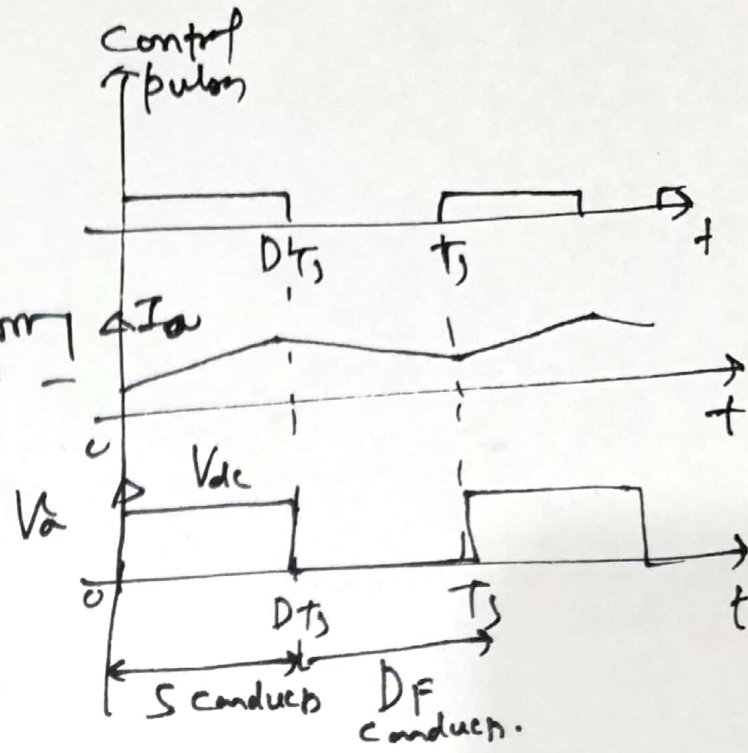 Control
pulses
DTs
Ts
t
Ia
t
0
Vdc
Va
0
DTs
Ts
t
S conducts
DF
conducts.